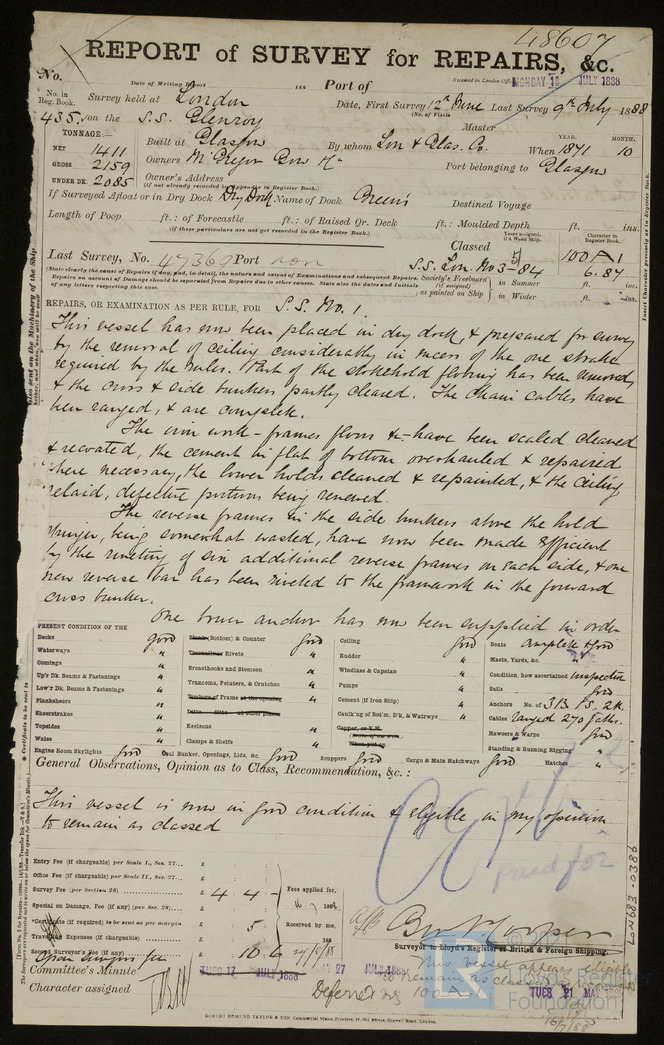 48607
REPORT of SURVEY for REPAIRS, &c.
No.
Date of Writing Report 188 Port of
Received in London Office MONDAY 16 JULY 1888
No. in Reg. Book.
Survey held at London
Date, First Survey 12th June Last Survey 9th July 1888
(No. of Visits
435. on the S.S. Glenroy
Master
TONNAGE:—
NET 1411
GROSS 2159
UNDER DK. 2085
Built at Glasgow
By whom Lon & Glas. Co.
When 1871
YEAR. MONTH.
10
Owners McGregor Gow &
Port belonging to Glasgow
Owner's Address
(If not already recorded in Appendix to Register Book.)
If Surveyed Afloat or in Dry Dock Dry Dock Name of Dock Green's Destined Voyage
Length of Poop ft.: of Forecastle ft.: of Raised Qr. Deck ft.: Moulded Depth ft. ins.
(If these particulars are not yet recorded in the Register Book.)
Years assigned, if a Wood Ship.
Character in Register Book.
Classed 100 A 1
Last Survey, No. 47369 Port Lon
S.S. Lon. No 3-5/84 6.87
(State clearly the cause of Repairs if any, and, in detail, the nature and extent of Examinations and subsequent Repairs.
Repairs on account of Damage should be separated from Repairs due to other causes. State also the Dates and Initials of any letters respecting this case.
Society's Freeboard (if assigned) as painted on Ship
in Summer ft. in.
in Winter ft. ins.
REPAIRS, OR EXAMINATION AS PER RULE, FOR S.S. No. 1.
This vessel has now been placed in dry dock, & prepared for survey
by the removal of ceiling considerably in excess of the one strake
required by the Rules. Part of the stokehold flooring has been removed
& the cross & side bunkers partly cleared. The chain cables have
been ranged, & are complete.
The iron work - frames floors &c - have been scaled cleaned
& recoated, the cement in flat of bottom overhauled & repaired
where necessary, the lower holds cleaned & repainted, & the ceiling
relaid, defective portions being renewed.
The reverse frames in the side bunkers above the hold
stringer, being somewhat wasted, have now been made efficient
by the riveting of six additional reverse frames on each side, & one
new reverse bar has been riveted to the framework in the forward
cross bunker.
One bower anchor has now been supplied in order
PRESENT CONDITION OF THE
Decks good
Waterways "
Comings "
Up'r Dk. Beams & Fastenings "
Low'r Dk. Beams & Fastenings "
Planksheers "
Sheerstrakes "
Topsides "
Wales "
Engine Room Skylights good
Plank (Bottom) & Counter good
Treenails or Rivets "
Breasthooks and Stemson "
Transoms, Pointers, & Crutches "
Timbers of Frame at the opening "
Ditto ditto at other places
Keelsons "
Clamps & Shelfs "
Coal Bunker, Openings, Lids, &c. good
Ceiling good
Rudder "
Windlass & Capstan "
Pumps "
Cement (if Iron Ship) "
Caulk'ng of Bot'm, D'k, & Watrways "
Copper, or Y.M.
When put on
Scuppers good
Cargo & Main Hatchways good
Boats complete & good
Masts, Yards, &c. "
Condition, how ascertained inspected
Sails good
Anchors No. of 3 B. 1 S. 2 K.
Cables ranged 270 faths.
Hawsers & Warps good
Standing & Running Rigging "
Hatches "
General Observations, Opinion as to Class, Recommendation, &c.:
This vessel is now in good condition & eligible in my opinion
to remain as classed
Paid for
Entry Fee (if chargeable) per Scale I., Sec. 27. £
Office Fee (if chargeable) per Scale II., Sec. 27. £
Survey Fee (per Section 28) £ 4 4 -
Special on Damage, Fee (if any) (per Sec. 28) £
*Certificate (if required) to be sent as per margin £ 5
Travelling Expenses (if chargeable) £
Second Surveyor's Fee (if any) £ 10.6
Fees applied for,
Received by me,
Surveyor to Lloyd's Register of British & Foreign Shipping.
Committee's Minute TUES 17 JULY 1888
27 JULY 1888
This vessel appears eligible
to remain as classed
Character assigned
Deferred
100A
TUES 21
16/7/88
Lloyd's Register Foundation
LON683-0386
ROBERT EDMUND TAYLOR & SON, Commercial Steam Printers, 19, Old Street, Goswell Road, London.